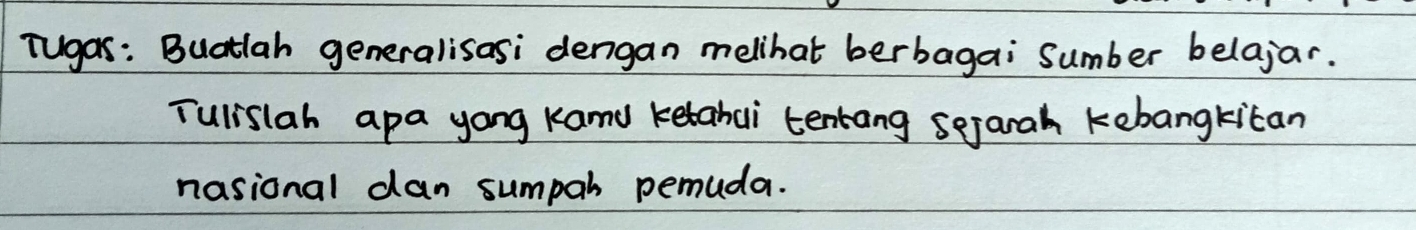 Tugas: Buatlah generalisasi dengan melihat berbagai sumber belajar.
Tulislah apa yang kamu ketahui tentang sejarah kebangkitan
nasional dan sumpah pemuda.